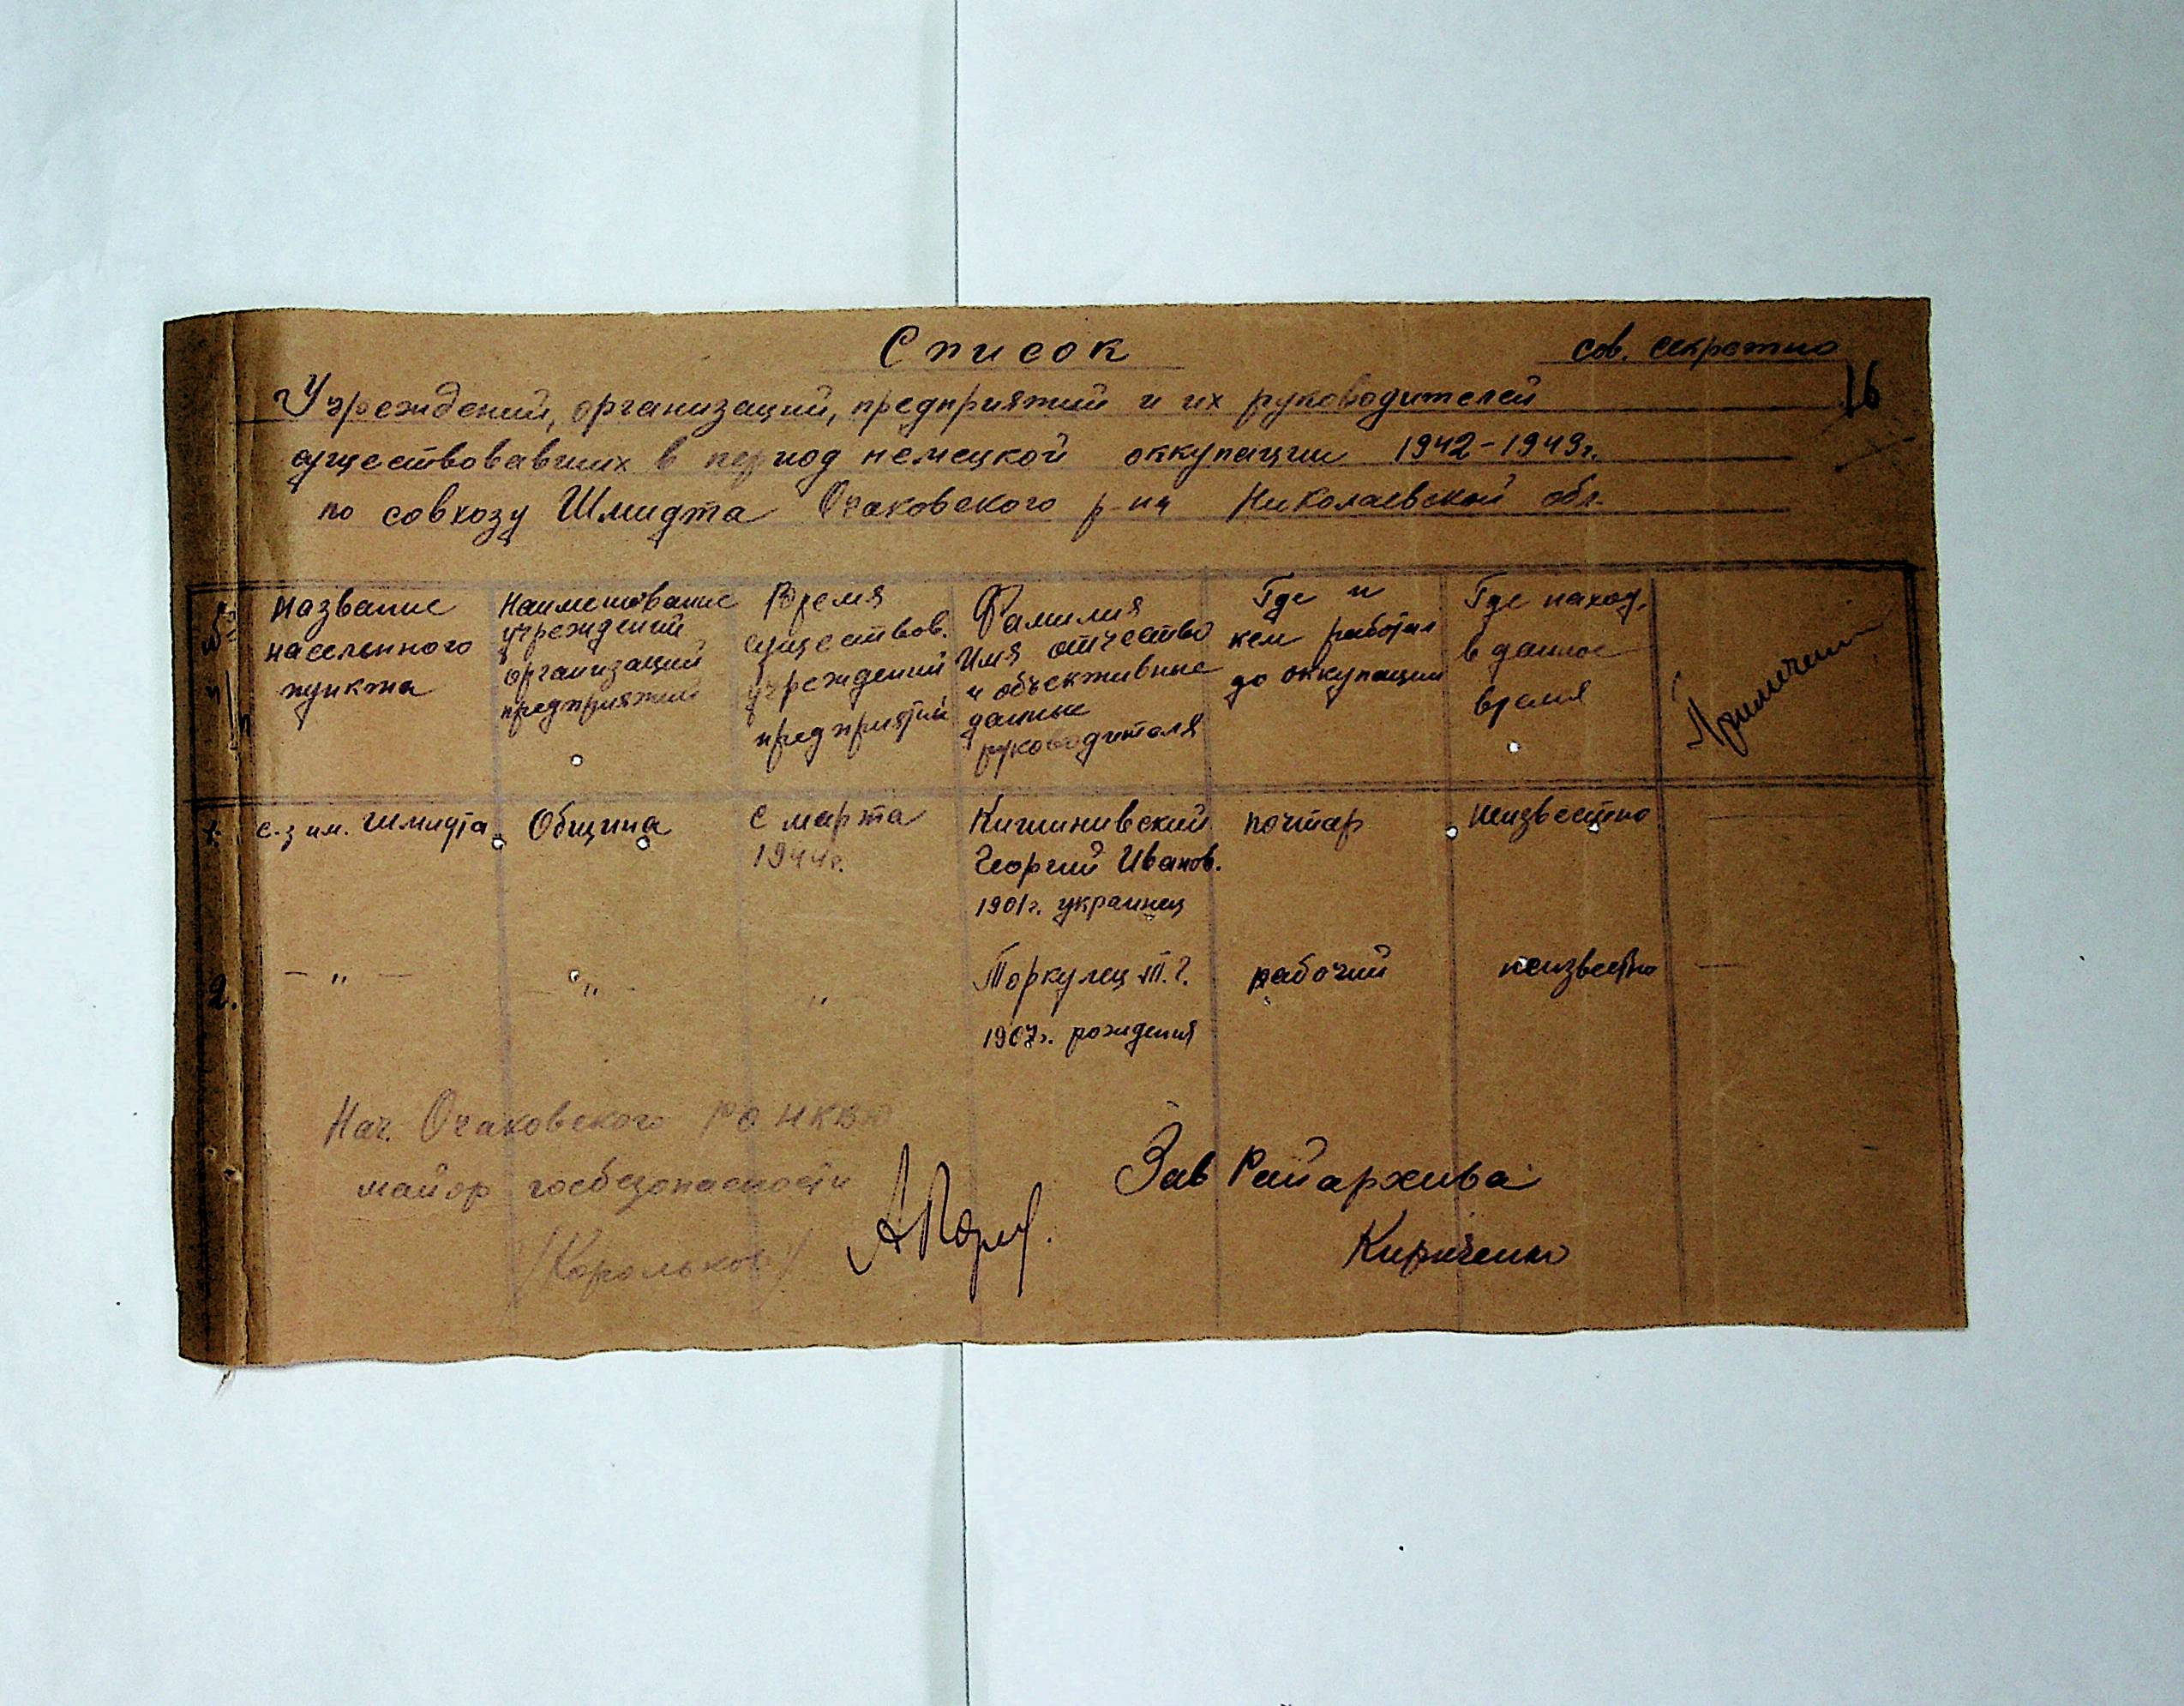 Список
сов. секретно
16
Учреждений, организаций, предприятий и их руководителей
существовавших в период немецкой оккупации 1942-1943г.
по совхозу Шмидта Очаковского р-на Николаевской обл.
№ п/п
Название
населенного
пункта
Наименование
учреждений
организаций
предприятий
Время
существов.
учреждений
предприятий
Фамилия
Имя отчество
и объективные
данные
руководителя
Где и
кем работал
до оккупации
Где наход.
в данное
время
Примечание
1. с-з им. Шмидта Община с марта Кишинивский почтар неизвестно —
1944г. Георгий Иванов.
1901г. украинец
2. — " — — " — " Торкулец Т.Г. рабочий неизвестно —
1907г. рождения
Нач. Очаковского РО НКВД
майор госбезопасности
/Корольков/
Зав Райархива
Кириченко